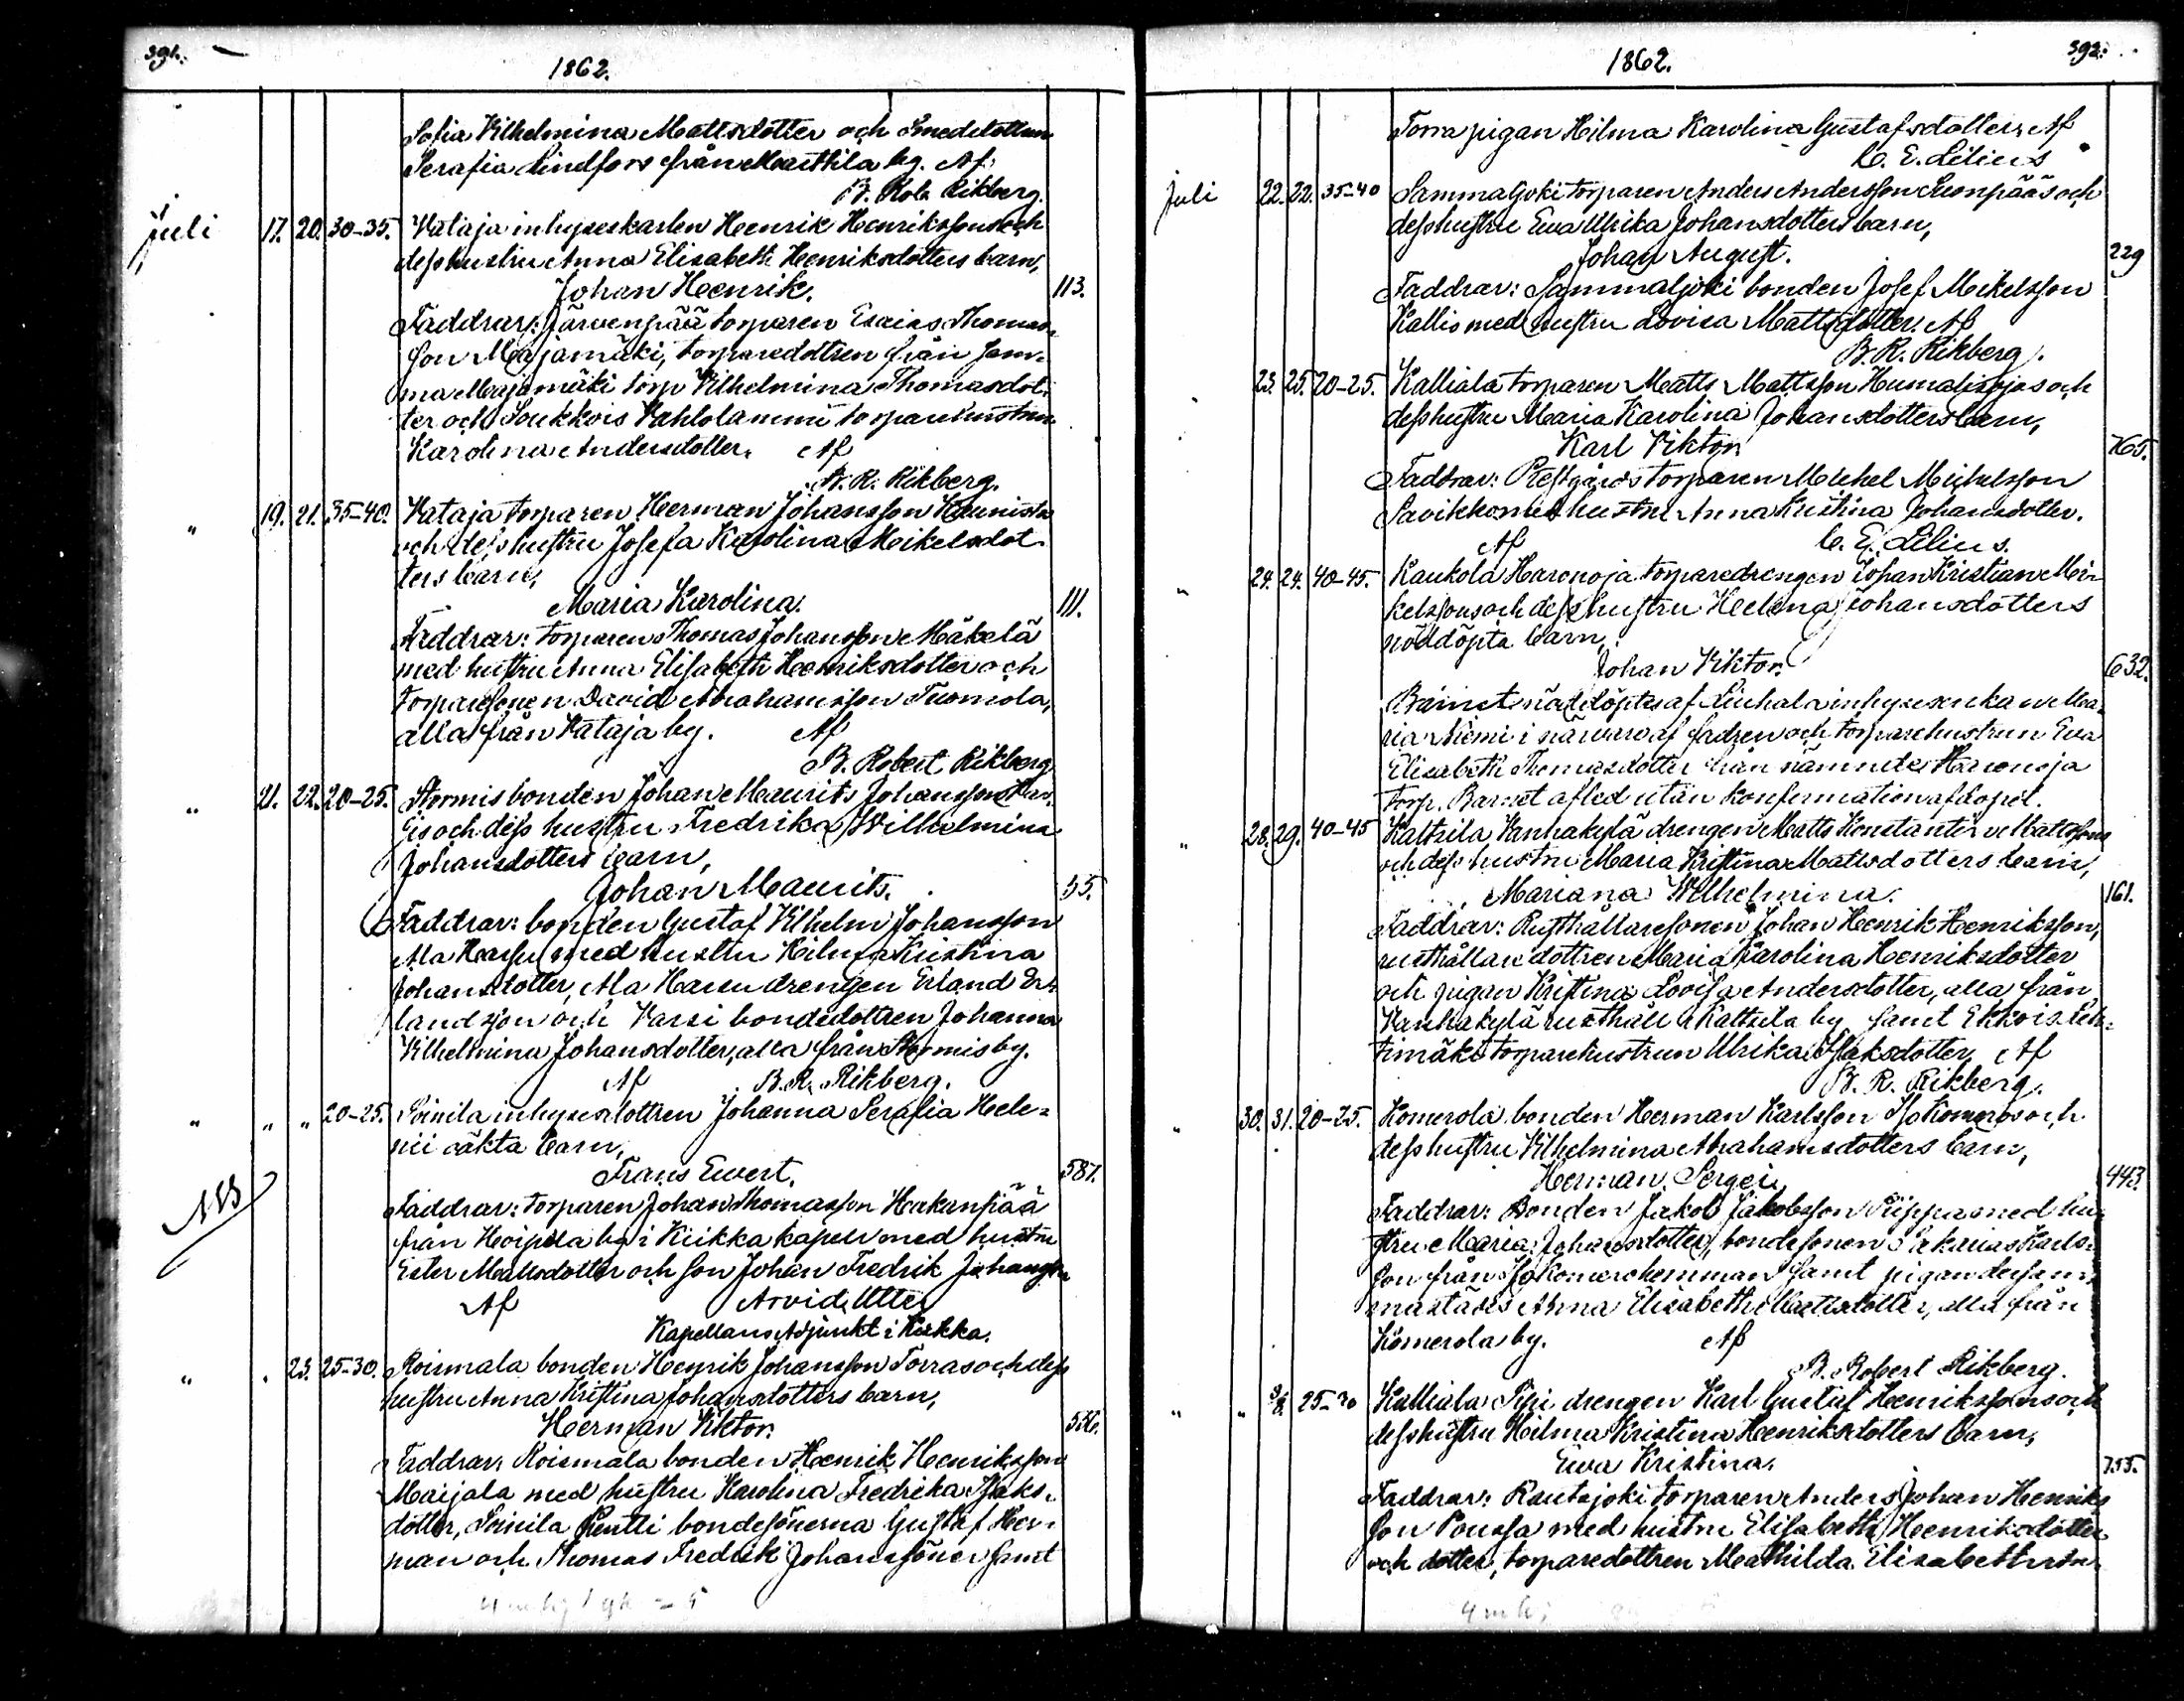 391.
1862.
Sofia Vilhelmina Mattsdotter och Smedsdottren
Serafia Lindfors från Marttila by. Af
B. Rob. Rikberg.
Juli 17. 20. 30-35. Kataja inhyseskarlen Henrik Henrikssons och
dess hustru Anna Elisabeth Henriksdotters barn,
Johan Henrik. 113.
Faddrar: Järvenpää torparen Esaias Thomas-
son Majamäki, torparedottren från sam-
ma Majamäki torp Vilhelmina Thomasdot-
ter och Soukkois Vahtolammi torparehustrun
Karolina Andersdotter. Af
B. R. Rikberg.
" 19. 21. 35-40. Kataja torparen Herman Johansson
och dess hustru Josefa Karolina Mikelsdot-
ters barn,
Maria Karolina. 111.
Faddrar: torparen Thomas Johansson Mäkelä
med hustru Anna Elisabeth Henriksdotter och
torparesonen David Abrahamsson Tuomola,
alla från Kataja by. Af
B. Robert Rikberg
" 21. 22. 20-25. Stormis bonden Johan Maurits Johansson
och dess hustru Fredrika Wilhelmina
Johansdotters barn,
Johan Maurits. 55.
Faddrar: bonden Gustaf Vilhelm Johansson
Ala med hustru Hilma Kristina
Johansdotter, Ala drengen Erland Er-
landsson och bondedottren Johanna
Vilhelmina Johansdotter, alla från Stormis by.
Af B. R. Rikberg.
" " " 20-25. Soinila inhysesdottren Johanna Serafia Hele-
nii oäkta barn,
Frans Ewert. 587.
Faddrar: torparen Johan Thomasson Hakanpää
från by i Kiikka kapell med hustru
Ester Mattsdotter och son Johan Fredrik Johansson
Af Arvid Utter
Kapellans Adjunkt i Kiikka.
" . 23. 25-30. Roismala bonden Henrik Johansson Torras och dess
hustru Anna Kristina Johansdotters barn,
Herman Viktor. 536.
Faddrar: Roismala bonden Henrik Henriksson
Maijala med hustru Karolina Fredrika Isaks-
dotter, Soinila Pentti bondesönerna Gustaf Her-
man och Thomas Fredrik Johanssöner samt
392.
1862.
Torra pigan Hilma Karolina Gustafsdotter. Af
C. E. Lilius
Juli 22. 22. 35-40 Sammaljoki torparen Anders Andersson och
dess hustru Eva Ulrika Johansdotters barn,
Johan August. 229
Faddrar: Sammaljoki bonden Josef Mikelsson
Kallio med hustru Lovisa Mattsdotter. Af
B. R. Rikberg.
23. 25. 20-25. Kalliala torparen Matts Mattsson Humalisojas och
dess hustru Maria Karolina Johansdotters barn,
Karl Viktor 765.
Faddrar: Prestgårds torparen Michel Michelsson
Savikko med hustru Anna Kristina Johansdotter.
Af C. E. Lilius.
" 24. 24. 40-45. Kaukola Haronoja torparedrengen Johan Kristian Mi-
kelssons och dess hustru Helena Johansdotters
nöddöpta barn,
Johan Viktor. 632.
Barnet nöddöptes af Liuhala inhysesenkan Ma-
ria Niemi i närvaro af fadren och torparehustrun Eva
Elisabeth Thomasdotter från nämnde Haronoja
torp. Barnet afled utan konfirmation af dopet.
" 28. 29. 40-45 Kaltsila Vanhakylä drengen Matts Konstantin Mattssons
och dess hustru Maria Kristina Mattsdotters barn,
Mariana Wilhelmina. 161.
Faddrar: Rusthållaresonen Johan Henrik Henriksson,
rusthållaredottren Maria Karolina Henriksdotter
och pigan Kristina Lovisa Andersdotter, alla från
Vanhakylä rusthåll i Kaltsila by samt Ekkois
torparehustrun Ulrika Isaksdotter. Af
B. R. Rikberg.
" 30. 31. 20-25. Komerola bonden Herman Karlsson Iso Komeros och
dess hustru Vilhelmina Abrahamsdotters barn,
Herman Sergei. 443.
Faddrar: Bonden Jakob Jakobsson Piippa med hu-
stru Maria Johansdotter, bondesonen Sakarias Karls-
son från Iso Komero hemman samt pigan dersam-
mastädes Anna Elisabeth Mattsdotter, alla från
Komerola by. Af
B. Robert Rikberg.
" " 3/8. 25-30 Kalliala drengen Karl Gustaf Henrikssons och
dess hustru Hilma Kristina Henriksdotters barn,
Eva Kristina. 755.
Faddrar: Rautajoki torparen Anders Johan Henriks-
son Poussa med hustru Elisabeth Henriksdotter
och dotter, torparedottren Mathilda Elisabeth